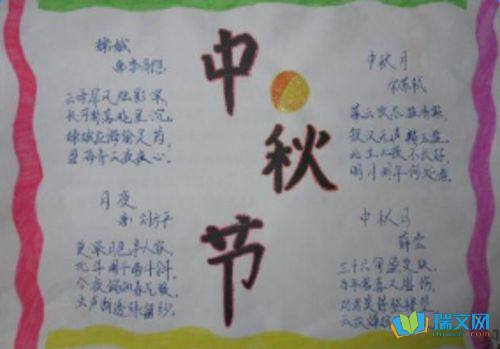 中秋节
嫦娥
唐 李商隐
云母屏风烛影深，
长河渐落晓星沉。
嫦娥应悔偷灵药，
碧海青天夜夜心。
月夜
唐 刘方平
更深月色半人家，
北斗阑干南斗斜。
今夜偏知春气暖，
虫声新透绿窗纱。
中秋月
宋 苏轼
暮云收尽溢清寒，
银汉无声转玉盘。
此生此夜不长好，
明月明年何处看。
中秋月
薛
三十六
瑞文网